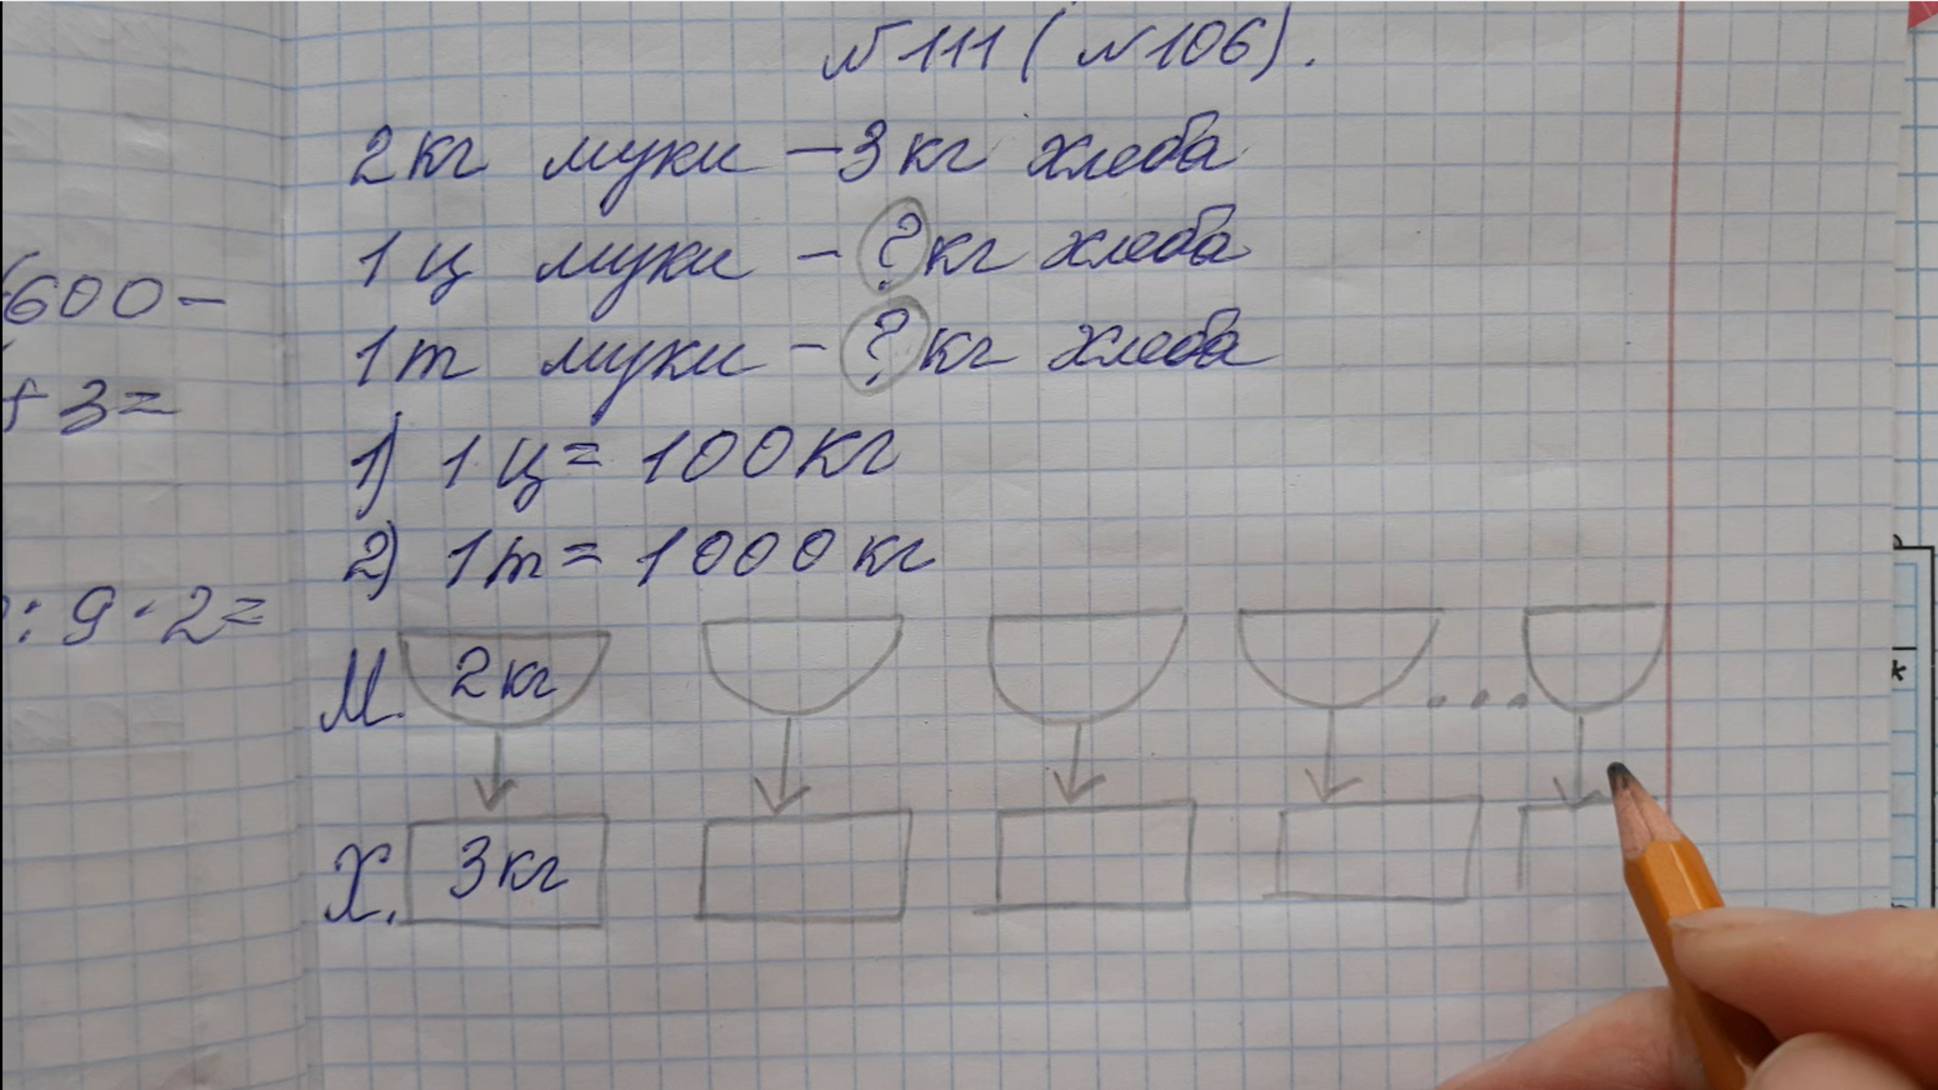 №111 (№106).
2кг муки – 3кг хлеба
1ц муки – ? кг хлеба
1т муки – ? кг хлеба
1) 1ц = 100кг
2) 1т = 1000кг
М. 2кг ...
Х. 3кг
(600 –
+ 3 =
: 9 · 2 =
к